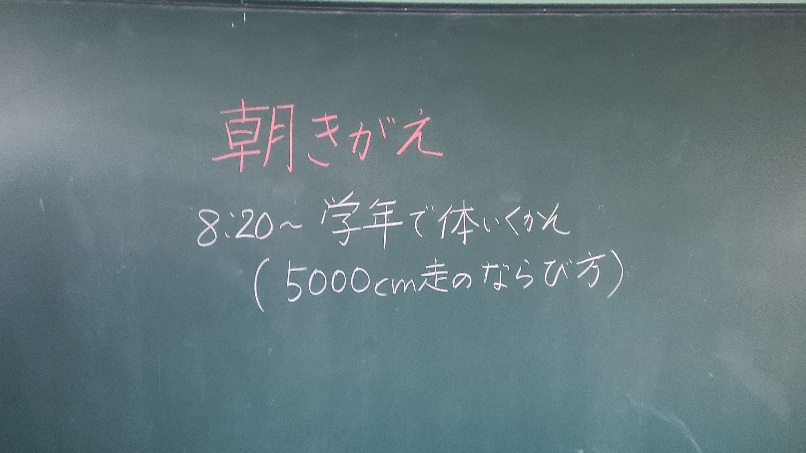 朝きがえ
8:20～学年で体いくかん
(5000cm走のならび方)